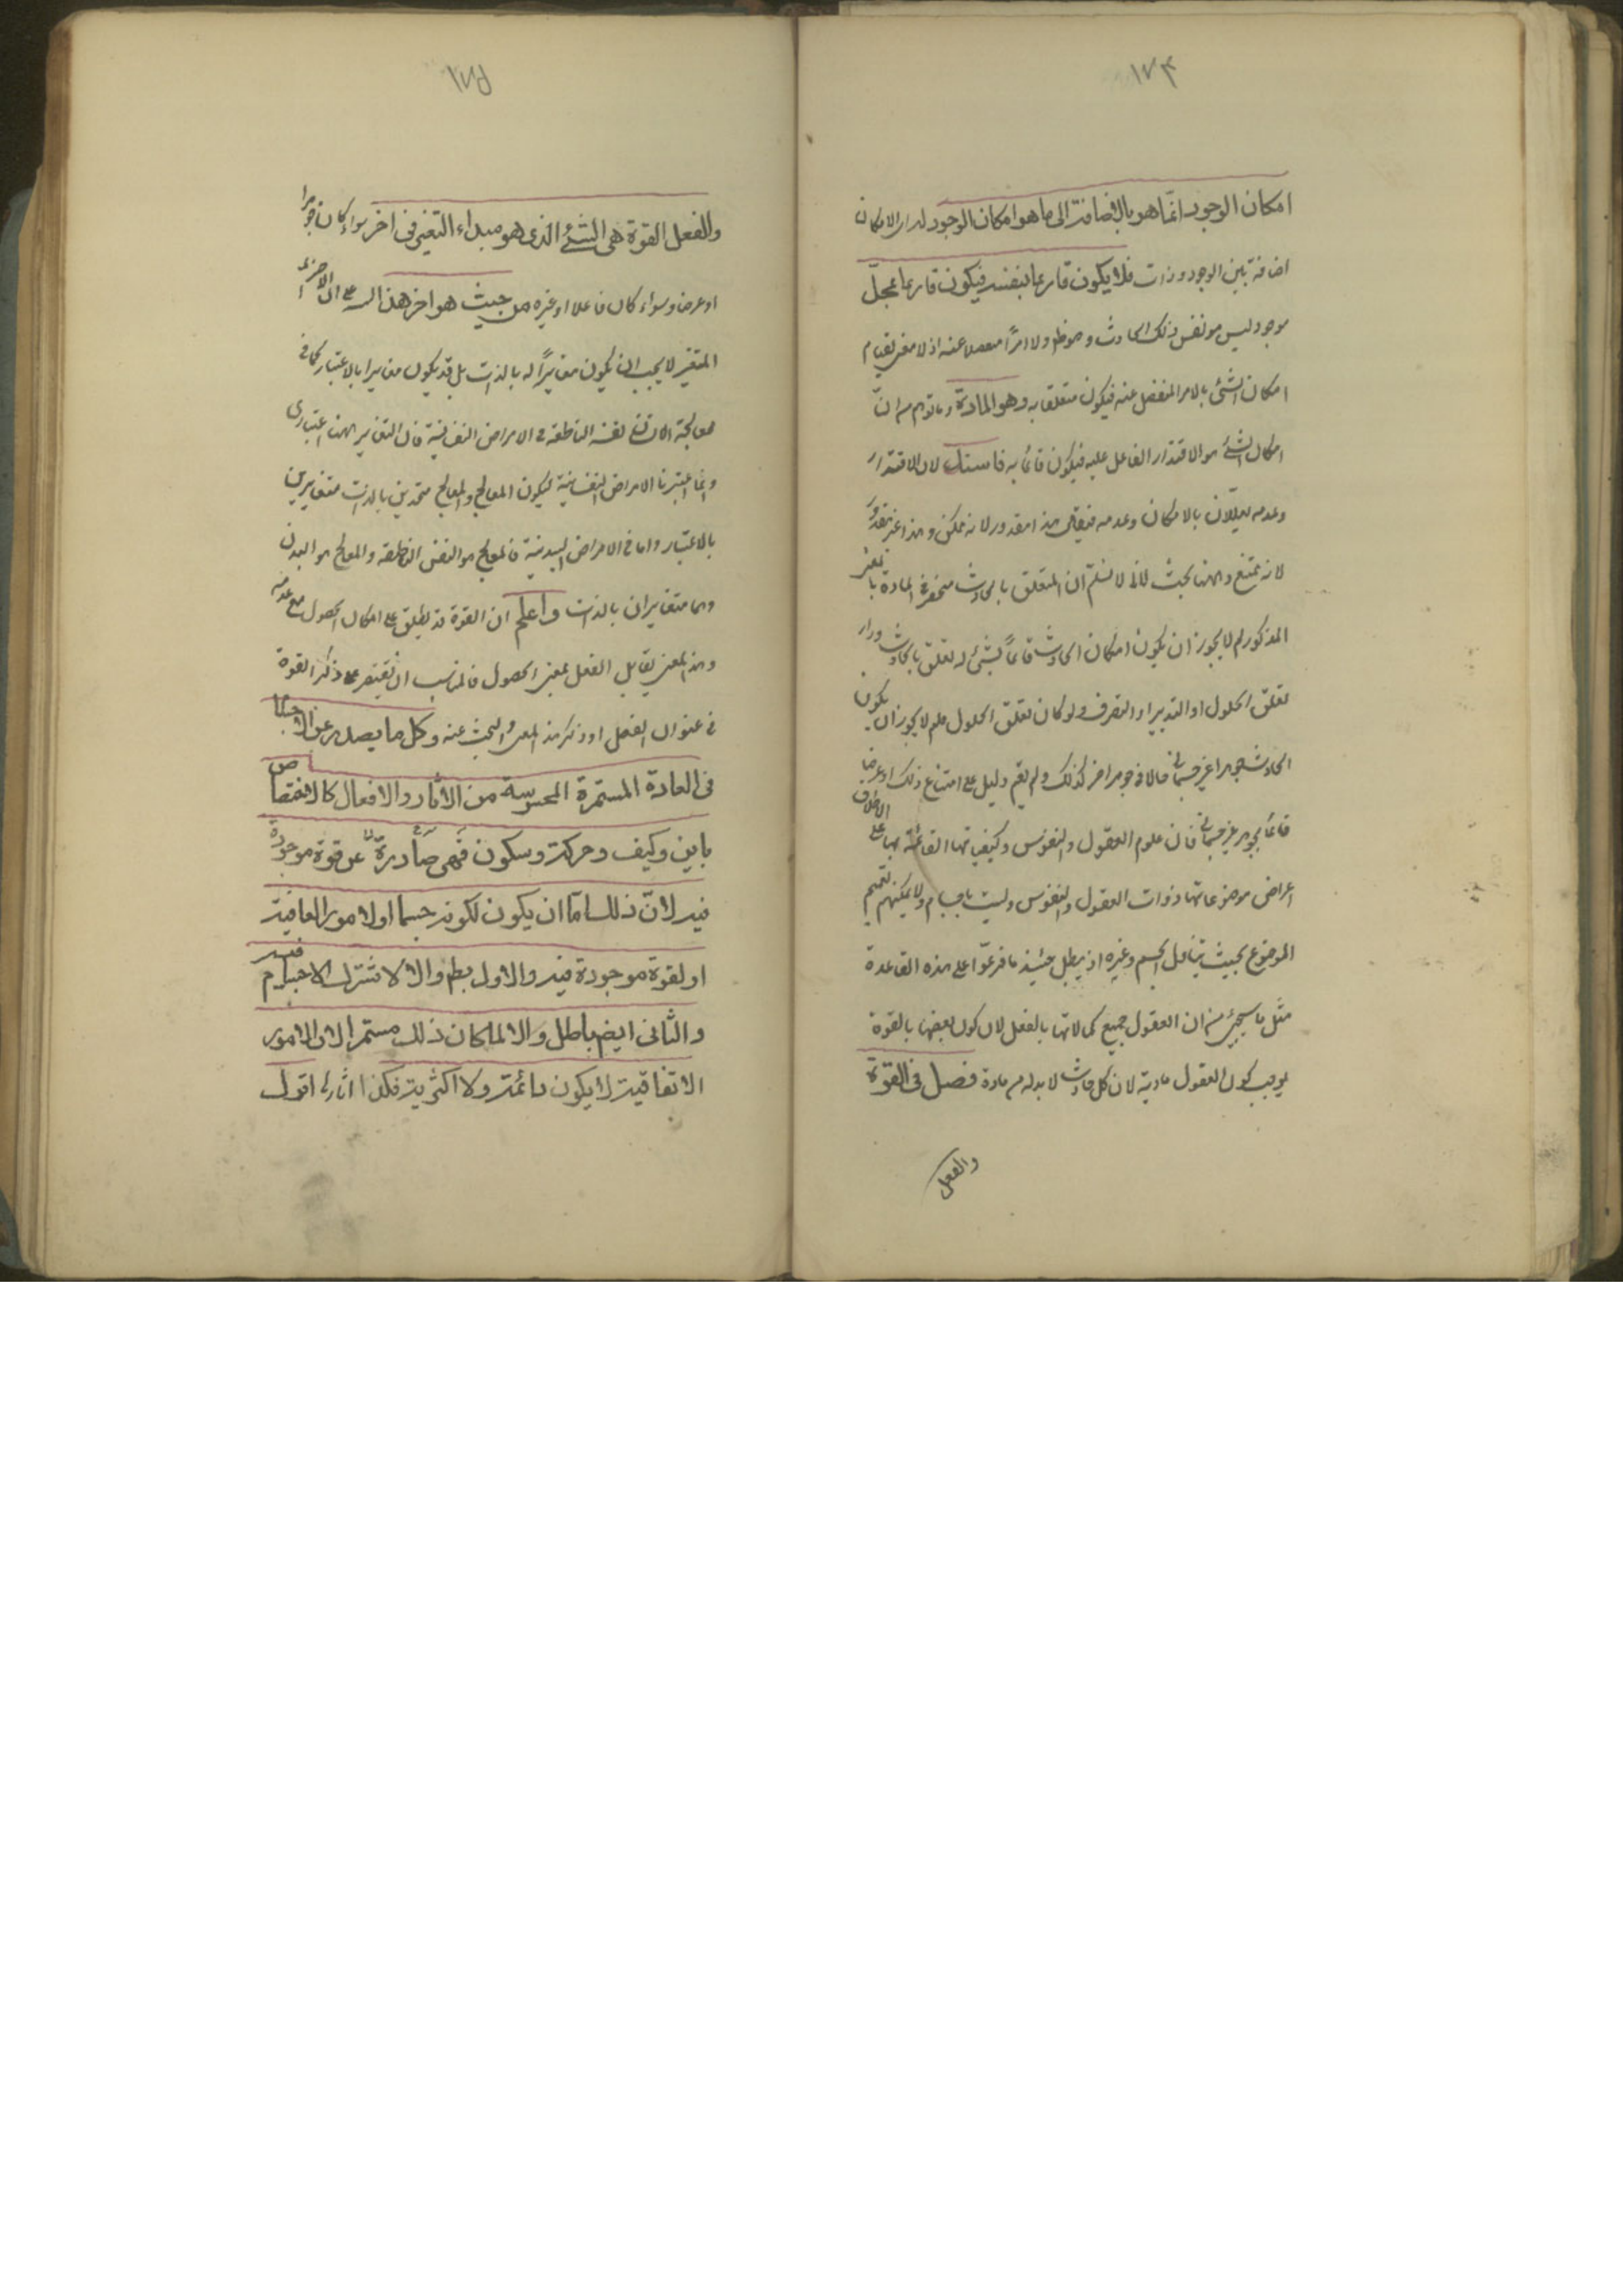 ١٧٤
امكان الوجود انما هو بالاضافة الى ما هو امكان الوجود له اى الامكان
اضافة بين الوجود وذات فلا يكون قائما بنفسه فيكون قائما بمحل
موجود ليس هو نفس ذلك الحادث وهو ظ ولا امرًا منفصلا عنه اذ لا معنى لقيام
امكان الشئ بالامر المنفصل عنه فيكون متعلقا به وهو المادة وما توهم من انّ
امكان الشئ هو الاقتدار الفاعل عليه فيكون قائما به فاسد لان الاقتدار
وعدمه يعللان بالامكان وعدمه فيقال هذا مقدور لانه ممكن وهذا غير مقدور
لانه ممتنع وههنا بحث لانا لا نسلّم ان المتعلق بالحادث منحصر فى المادة بالمعنى
المذكور لم لا يجوز ان يكون امكان الحادث قائمًا بشئ له تعلق بالحادث وراء
تعلق الحلول او التدبير او التصرف ولو كان تعلق الحلول فلم لا يجوز ان يكون
الحادث جوهرا غير جسمانى حالا فى جوهر اخر كذلك ولم يقم دليل على امتناع ذلك او عرضا
قائما بجوهر غير جسمانى فان علوم العقول والنفوس وكيفياتها القائمة بها على الاطلاق
اعراض موضوعاتها ذوات العقول والنفوس وليست باجسام ولا يمكنهم تعميم
الموضوع بحيث يتناول الجسم وغيره اذ يبطل حينئذ ما فرعوا على هذه القاعدة
مثل ما سيجئ من ان العقول جميع كمالاتها بالفعل لان كون بعضها بالقوة
يوجب كون العقول مادية لان كل حادث لا بد له من مادة فصل فى القوة
والفعل
١٧٥
والفعل القوة هى الشئ الذى هو مبداء التغير فى اخر سواء كان جوهرا
او عرضا وسواء كان فاعلا او غيره من حيث هو اخر هذا
المتغير لا يجب ان يكون مغايرًا له بالذات بل قد يكون مغايرا بالاعتبار كما فى
معالجة الانسان نفسه الناطقة فى الامراض النفسانية فان التغاير ههنا اعتبارى
وانما اعتبرنا الامراض النفسانية ليكون المعالج والمعالج متحدين بالذات متغايرين
بالاعتبار واما فى الامراض البدنية فالمعالج هو النفس الناطقة والمعالج هو البدن
وهما متغايران بالذات واعلم ان القوة قد يطلق على امكان الحصول مع عدمه
وهذا المعنى يقابل الفعل بمعنى الحصول فالمناسب ان يقتصر على ذكر القوة
فى عنوان الفصل او ذكر هذا المعنى والبحث عنه وكل ما يصدر عن الاجسام
فى العادة المستمرة المحسوسة من الاثار والافعال كالاختصاص
باين وكيف وحركة وسكون فهى صادرة عن قوة موجودة
فيه لانّ ذلك امّا ان يكون لكونه جسما او لامور اتفاقية
او لقوة موجودة فيه والاول بط والا لاشترك الاجسام فيه
والثانى ايضا باطل والا لما كان ذلك مستمرا لان الامور
الاتفاقية لا يكون دائمة ولا اكثرية فكذا اثارها اقول